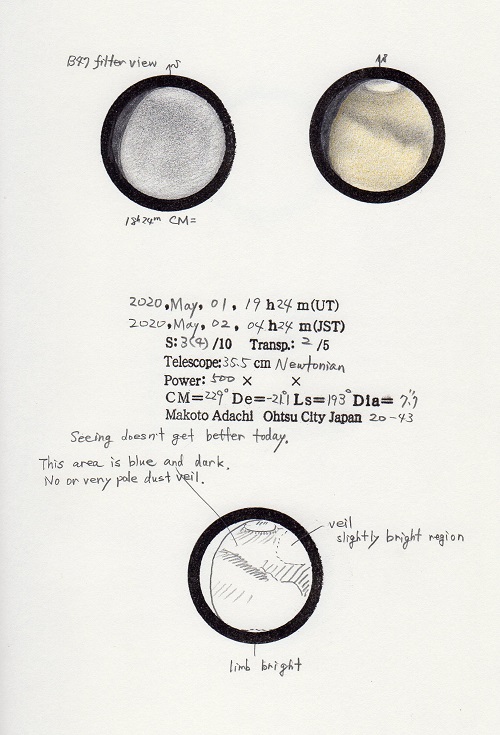 B47 filter view ↑S
↑S
18h24m CM=
2020, May, 01, 19 h 24 m (UT)
2020, May, 02, 04 h 24 m (JST)
S: 3(4) /10 Transp.: 2 /5
Telescope: 35.5 cm Newtonian
Power: 500 × ×
CM=229° De=-21°1 Ls=193° Dia=
Makoto Adachi Ohtsu City Japan 20-43
Seeing doesn't get better today.
This area is blue and dark.
No or very pale dust veil.
veil
slightly bright region
limb bright